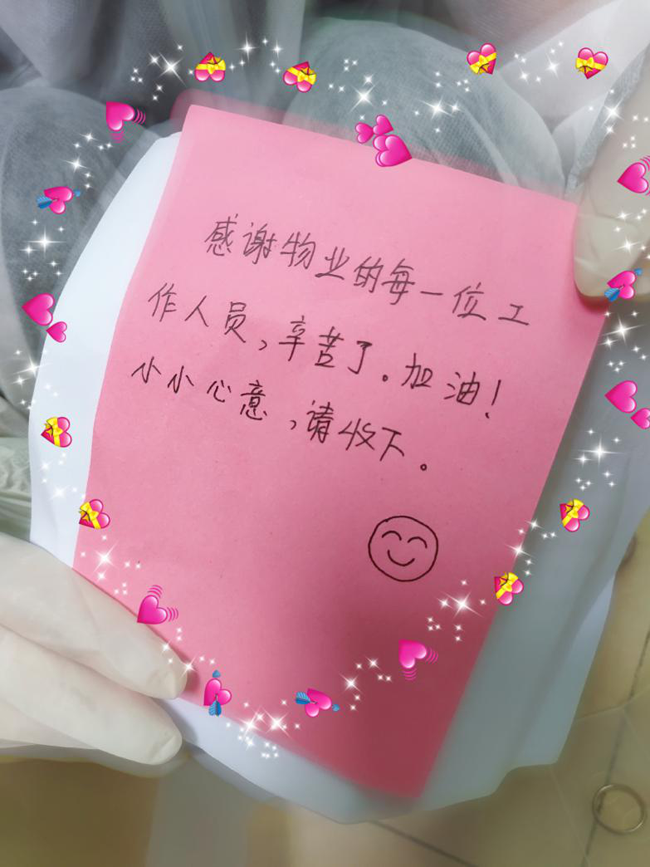 感谢物业的每一位工
作人员,辛苦了。加油!
小小心意,请收下。